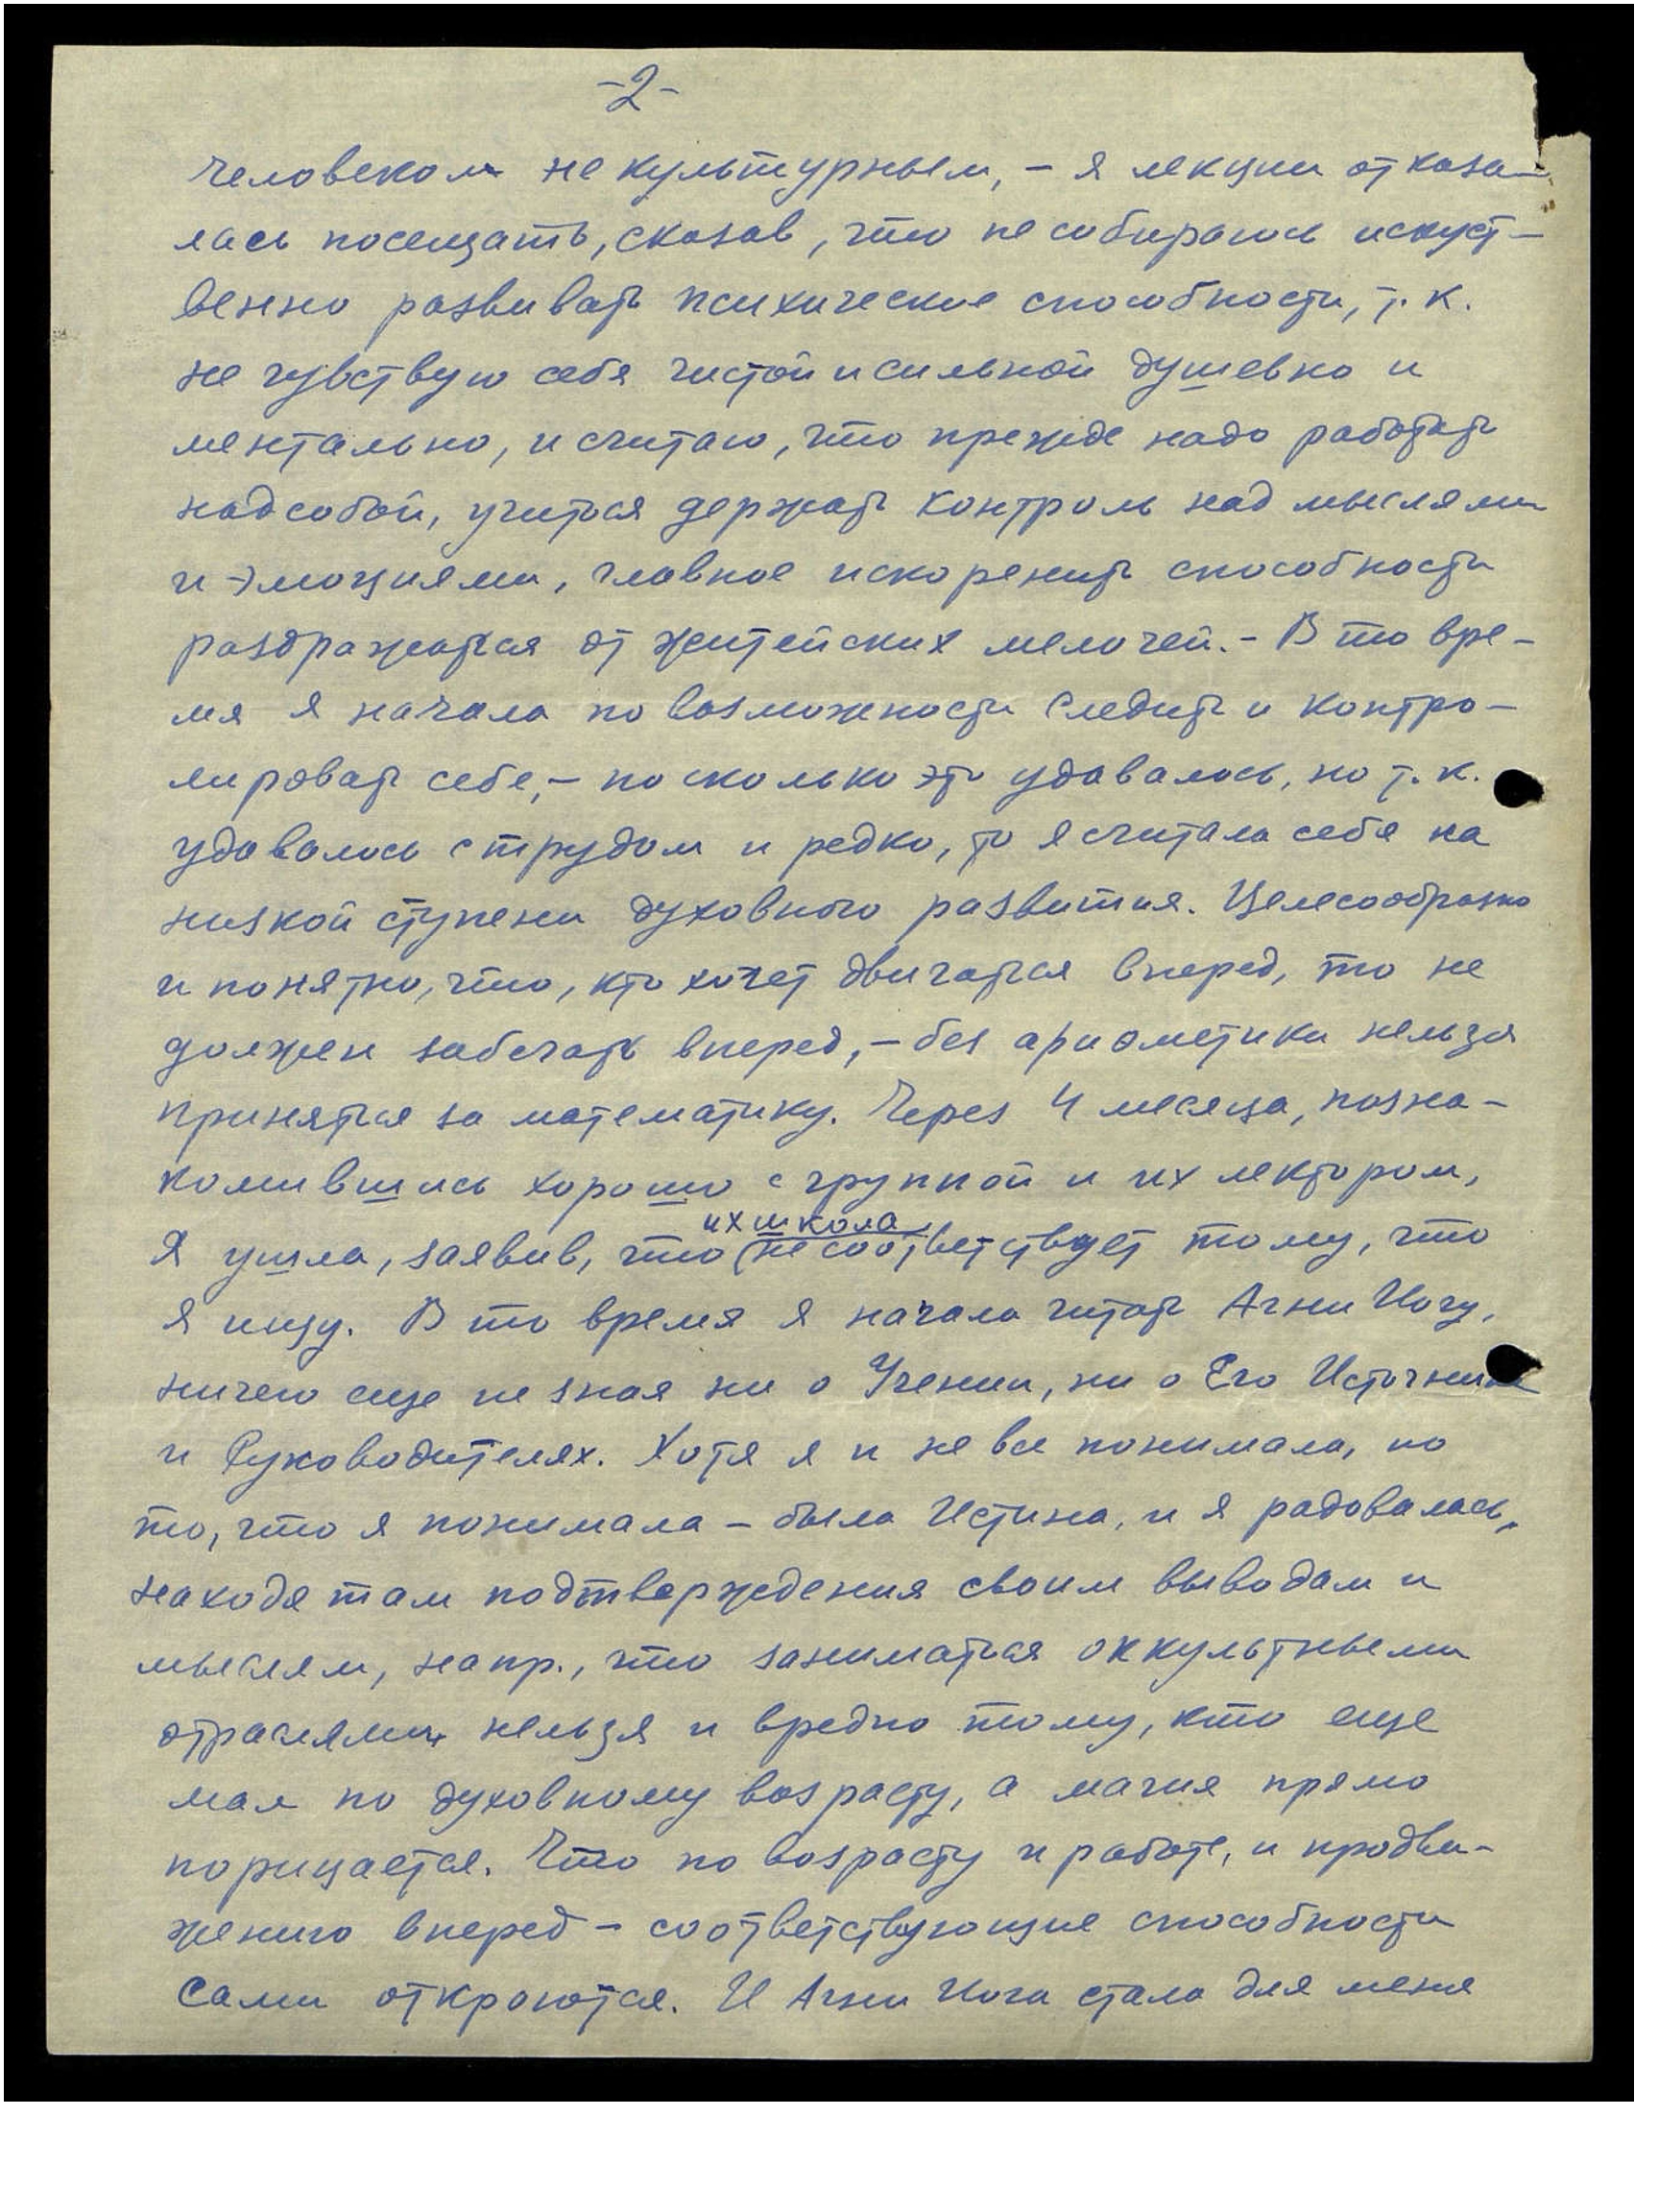 -2-
человеком не культурным, - я лекции отказа-
лась посещать, сказав, что не собираюсь искуст-
венно развивать психические способности, т.к.
не чувствую себя чистой и сильной душевно и
ментально, и считаю, что прежде надо работать
над собой, учиться держать контроль над мыслями
и эмоциями, главное искоренить способность
раздражаться от житейских мелочей. - В то вре-
мя я начала по возможности следить и контро-
лировать себе, - поскольку это удавалось, но т.к.
удавалось с трудом и редко, то я считала себя на
низкой ступени духовного развития. Целесообразно
и понятно, что, кто хочет двигаться вперед, то не
должен забегать вперед, - без арифметики нельзя
приняться за математику. Через 4 месяца, позна-
комившись хорошо с группой и их лектором,
Я ушла, заявив, что (их школа) не соответствует тому, что
Я ищу. В то время я начала читать Агни Йогу,
ничего еще не зная ни о Учении, ни о Его Источнике
и Руководителях. Хотя я и не все понимала, но
то, что я понимала - была Истина, и я радовалась,
находя там подтверждения своим выводам и
мыслям, напр., что заниматься оккультными
отраслями нельзя и вредно тому, кто еще
мал по духовному возрасту, а магия прямо
порицается. Что по возрасту и работе, и продви-
жению вперед - соответствующие способности
сами откроются. И Агни Йога стала для меня